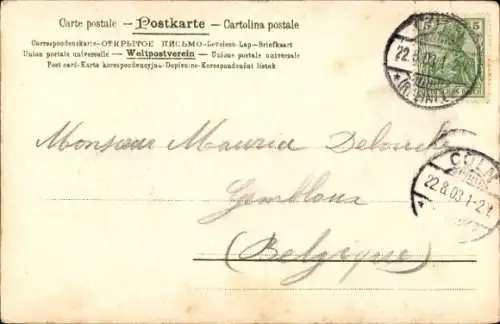 Carte postale – Postkarte – Cartolina postale
Correspondenzkarte – ОТКРЫТОЕ ПИСЬМО – Levelezö-Lap – Briefkaart
Union postale universelle – Weltpostverein – Unione postale universale
Post card – Karta korespondencyjna – Dopisnice – Korespondenční lístek
5
22.8.03.1-
Monsieur Mauric Delouche
Gembloux
(Belgique)
CÖLN
22.8.03.1-2N.